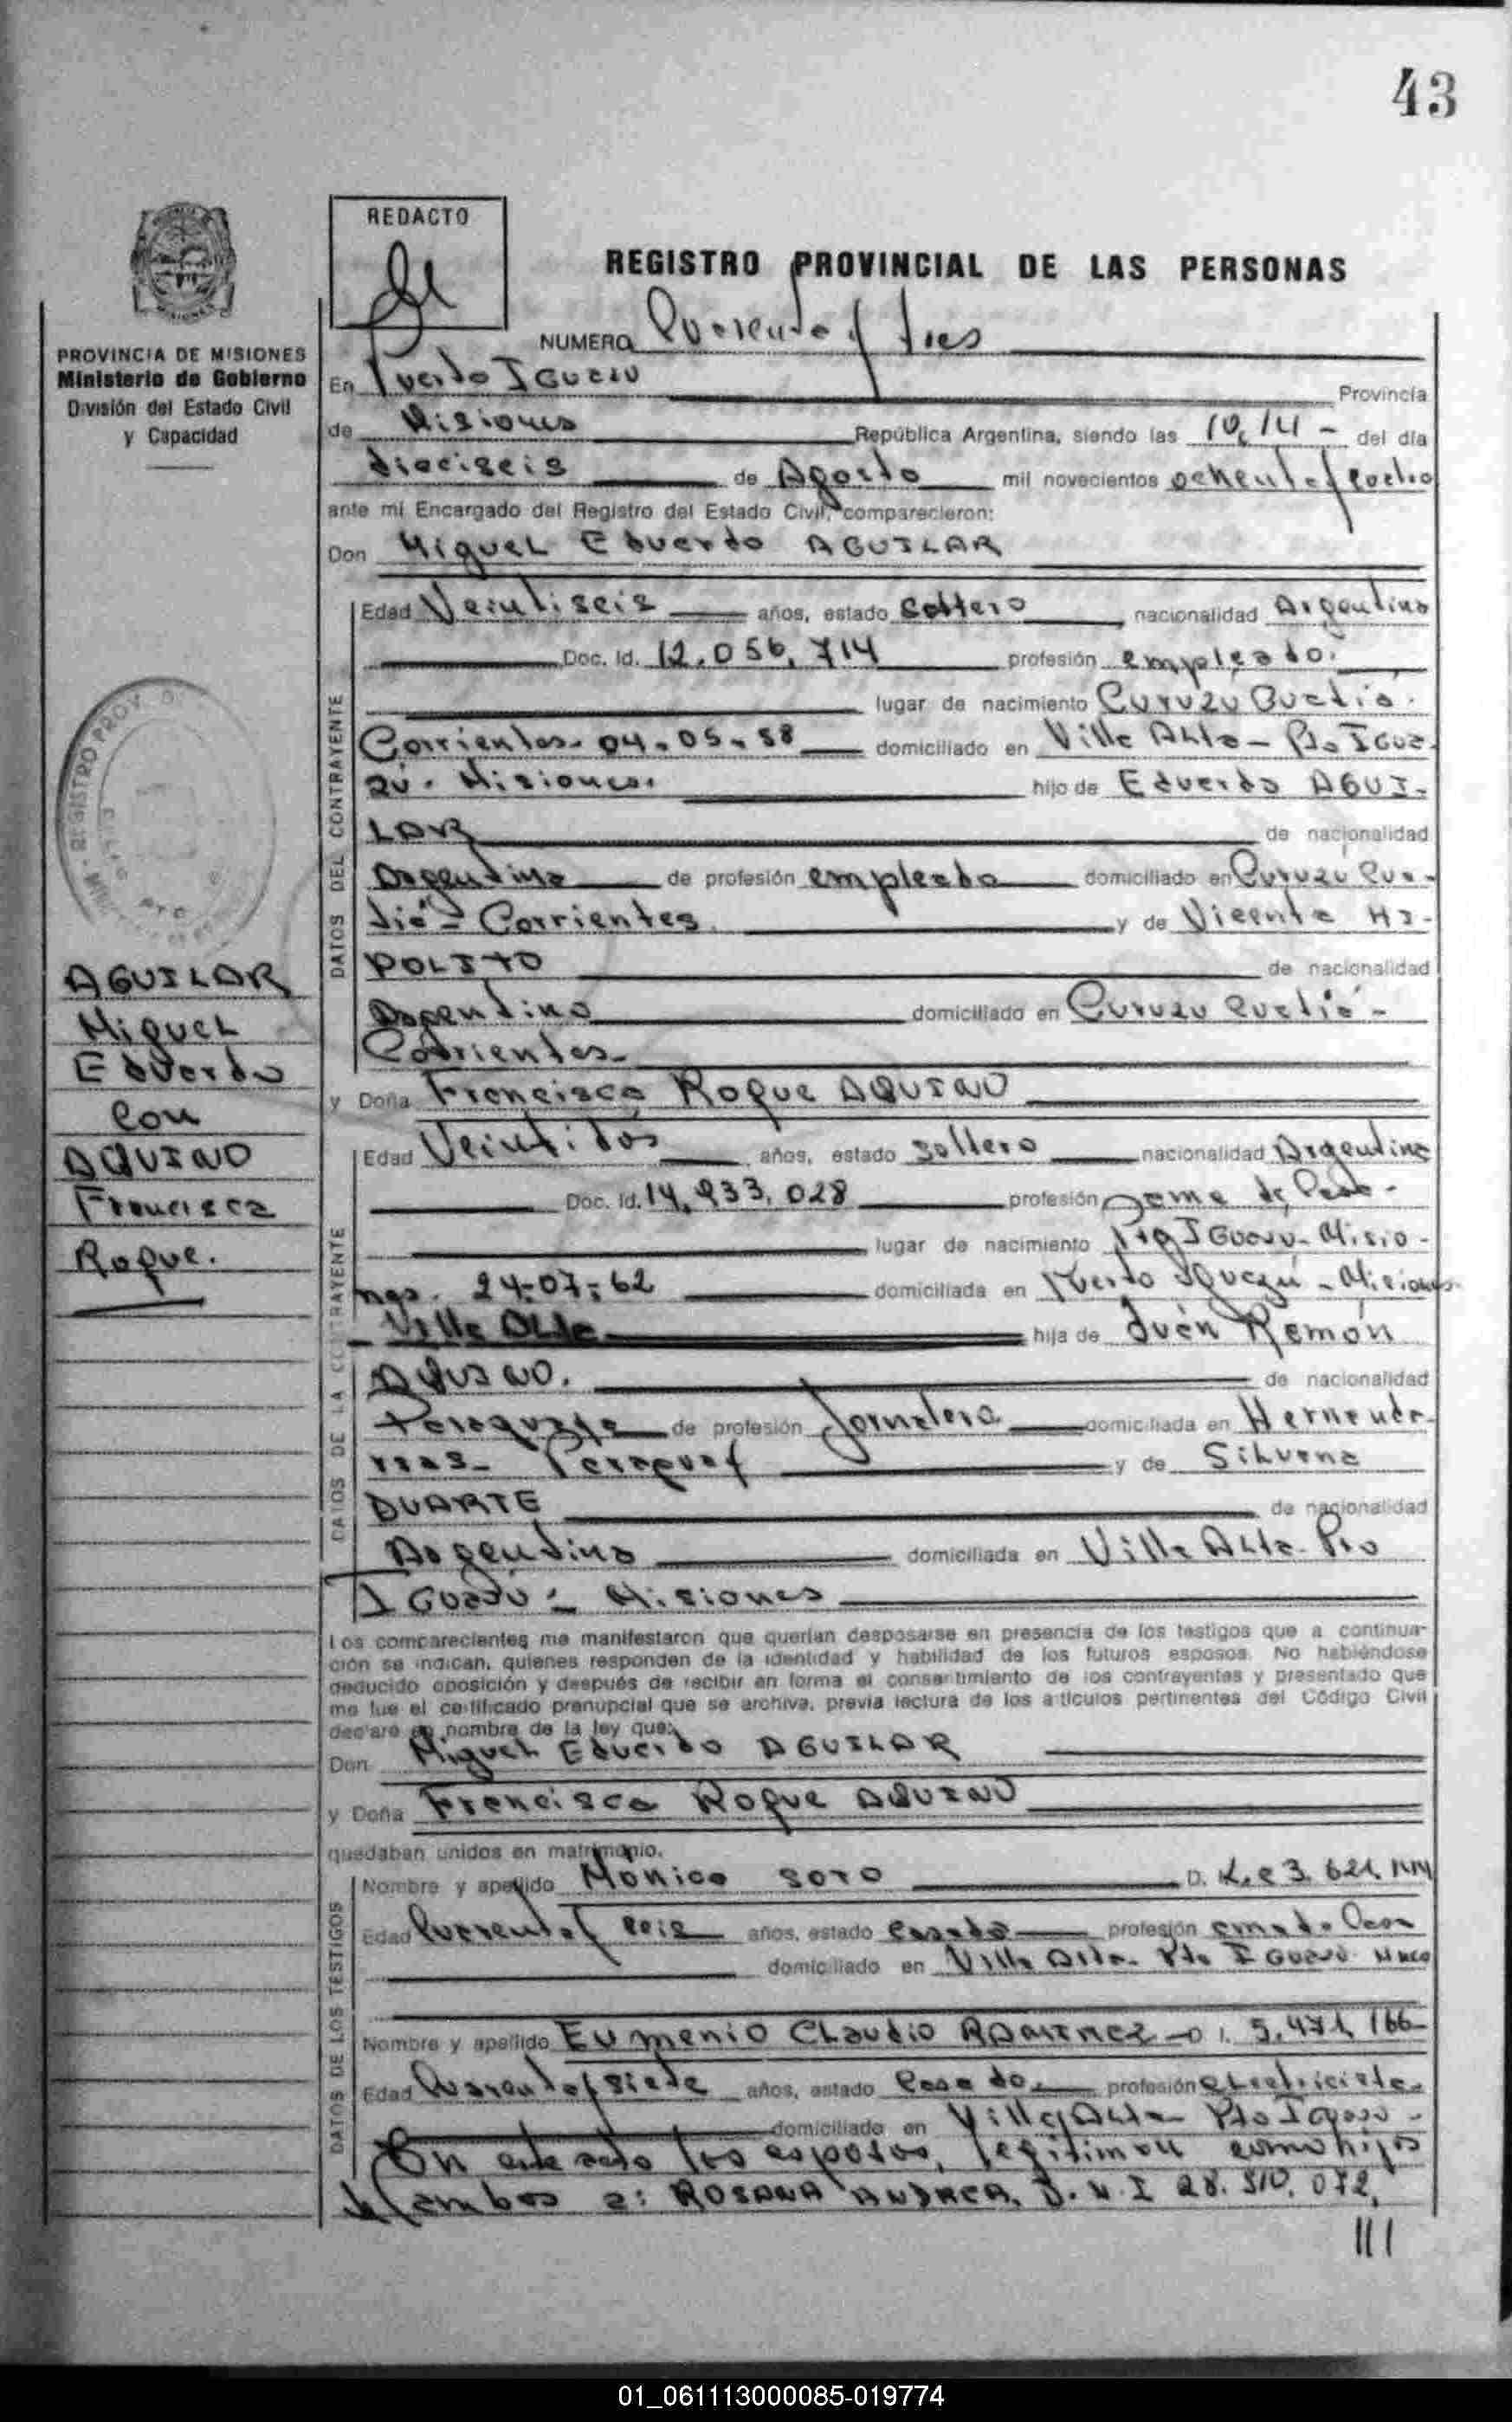 43
REDACTO
REGISTRO PROVINCIAL DE LAS PERSONAS
NUMERO Cuarenta y tres
PROVINCIA DE MISIONES
Ministerio de Gobierno
División del Estado Civil
y Capacidad
En Puerto IGUAZU Provincia
de Misiones República Argentina, siendo las 10,14 - del día
dieciseis de Agosto mil novecientos ochenta y cuatro
ante mi Encargado del Registro del Estado Civil, comparecieron:
Don Miguel Eduardo AGUILAR
DATOS DEL CONTRAYENTE
Edad Veintiseis años, estado soltero nacionalidad Argentino
Doc. Id. 12.056.714 profesión empleado.
lugar de nacimiento Curuzu Cuatiá.
Corrientes- 04-05-58 domiciliado en Villa Alta- Pto Igua-
zú. Misiones. hijo de Eduardo AGUI-
LAR de nacionalidad
Argentina de profesión empleado domiciliado en Curuzú Cua-
tiá- Corrientes y de Vicenta HI-
POLITO de nacionalidad
Argentina domiciliado en Curuzu Cuatiá-
Corrientes-
AGUILAR
Miguel
Eduardo
con
AQUINO
Francisca
Roque.
y Doña Francisca Roque AQUINO
DATOS DE LA CONTRAYENTE
Edad Veintidós años, estado soltera nacionalidad Argentina
Doc. Id. 14.933.028 profesión Ama de Casa-
lugar de nacimiento Pto IGuazú- Misio-
nes. 24-07-62 domiciliada en Puerto Iguazú - Misiones
- Villa Alta hija de Juán Ramón
AQUINO. de nacionalidad
Paraguaya de profesión Jornalero domiciliada en Hernanda-
rias- Paraguay y de Silvana
DUARTE de nacionalidad
Argentina domiciliada en Villa Alta- Pto
IGuazú- Misiones
Los comparecientes me manifestaron que querían desposarse en presencia de los testigos que a continua-
ción se indican, quienes responden de la identidad y habilidad de los futuros esposos. No habiéndose
deducido oposición y después de recibir en forma el consentimiento de los contrayentes y presentado que
me fue el certificado prenupcial que se archiva, previa lectura de los artículos pertinentes del Código Civil
declaro en nombre de la ley que:
Don Miguel Eduardo AGUILAR
y Doña Francisca Roque AQUINO
quedaban unidos en matrimonio.
DATOS DE LOS TESTIGOS
Nombre y apellido Monica SOTO D.
Edad Cuarenta y seis años, estado casada profesión ama de Casa
domiciliado en Villa Alta- Pto IGuazú
Nombre y apellido EUmenio CLaudio D. I. 5.471.166
Edad Cuarenta y siete años, estado Casado- profesión electricista-
domiciliado en Villa Alta- Pto Iguazú-
En este acto los esposos, legitiman como hijos
de ambos a: ROSANA ANDREA, D.N.I 28.510.072,
///
01_061113000085-019774